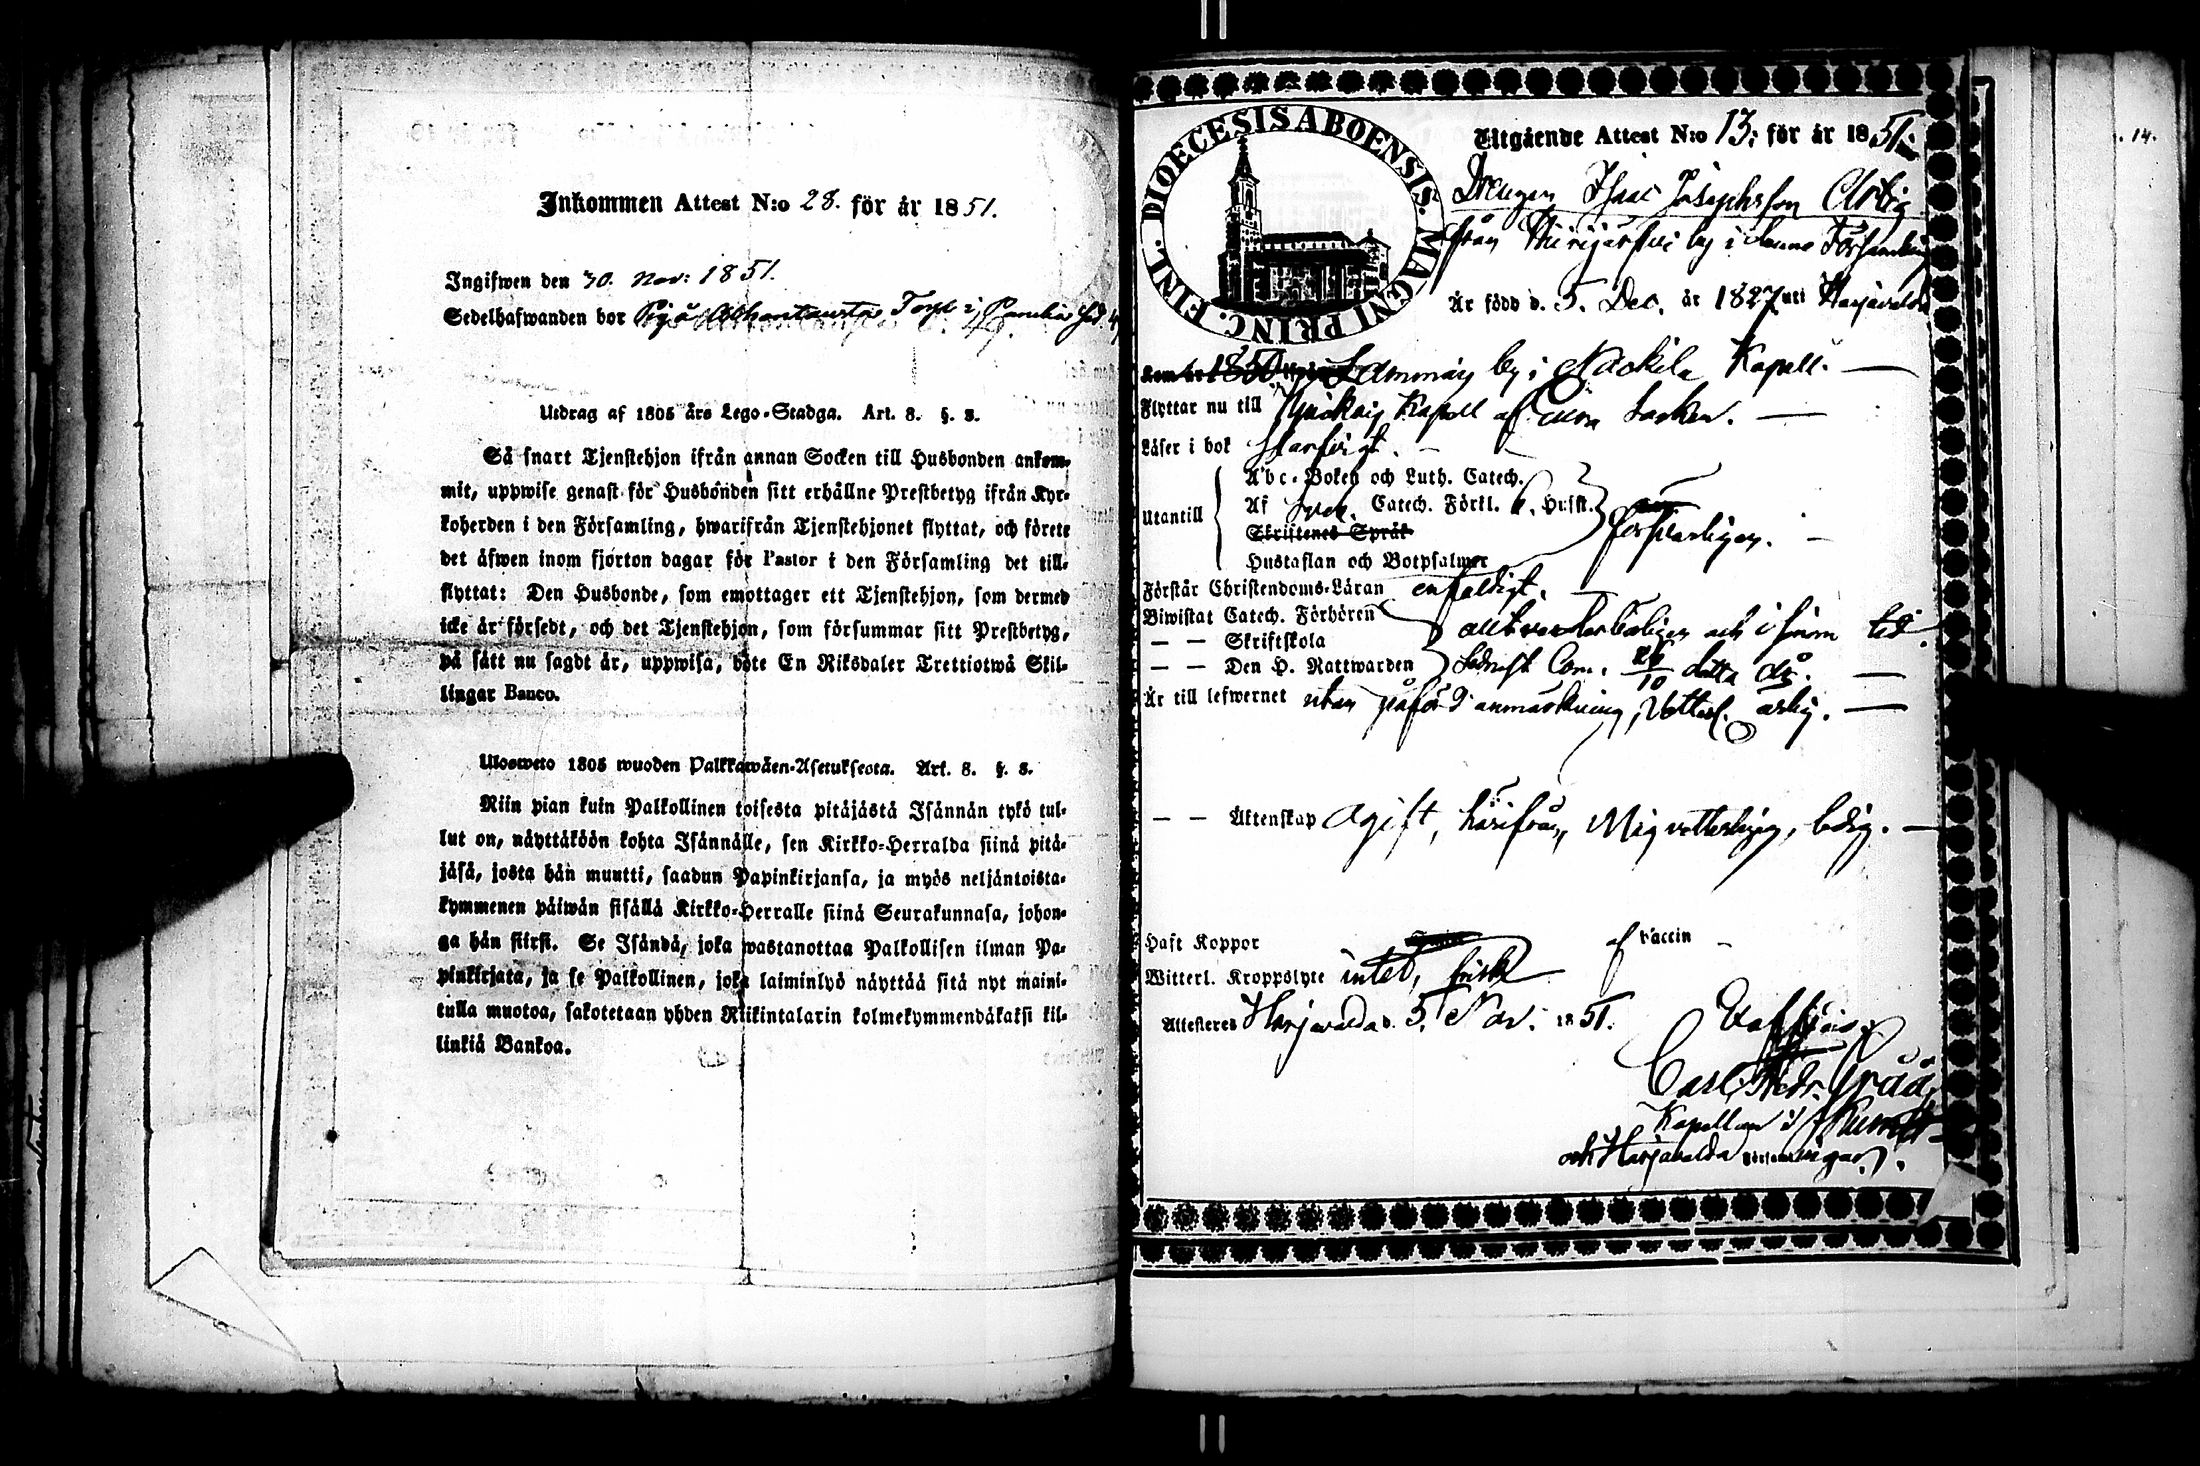 Inkommen Attest N:o 28. för år 1851.
Ingifwen den 30. Nov: 1851.
Sedelhafwanden bor Torp i
Utdrag af 1805 års Lego-Stadga. Art. 8. §. 3.
Så snart Tjenstehjon ifrån annan Socken till Husbonden ankom-
mit, uppwise genast för Husbonden sitt erhållne Prestbetyg ifrån Kyr-
koherden i den Församling, hwarifrån Tjenstehjonet flyttat, och förete
det äfwen inom fjorton dagar för Pastor i den Församling det till-
flyttat: Den Husbonde, som emottager ett Tjenstehjon, som dermed
icke är försedt, och det Tjenstehjon, som försummar sitt Prestbetyg,
på sätt nu sagdt är, uppwisa, böte En Riksdaler Trettiotwå Skil-
lingar Banco.
Ulosweto 1805 wuoden Palkkawäen-Asetuksesta. Art. 8. §. 3.
Niin pian kuin Palkollinen toisesta pitäjästä Isännän tykö tul-
lut on, näyttäköön kohta Isännälle, sen Kirkko-Herralda siinä pitä-
jäsä, josta hän muutti, saadun Papinkirjansa, ja myös neljäntoista-
kymmenen päiwän sisällä Kirkko-Herralle siinä Seurakunnasa, johon-
ga hän siirsi. Se Isändä, joka wastanottaa Palkollisen ilman Pa-
pinkirjata, ja se Palkollinen, joka laiminlyö näyttää sitä nyt maini-
tulla muotoa, sakotetaan yhden Riikintalarin kolmekymmendäkaksi kil-
linkiä Bankoa.
. 14.
DIOECESIS ABOENSIS. MAGNI PRINC. FINL.
Utgående Attest N:o 13. för år 1851.
Drengen Isaac Josephsson
från by i denna Församling
Är född d. 5. Dec. år 1827 uti Harjavalda
Kom år 1850 ifrån Lammais by i Nackila Kapell.
Flyttar nu till Kapell af Socken.
Läser i bok
Utantill
Abc-Boken och Luth. Catech.
Af Sveb. Catech. Förkl. Hufst.
Skriftenes Språk
Hustaflan och Botpsalmer
försvarligen.
Förstår Christendoms-Läran enfaldigt.
Biwistat Catech. Förhören
— — Skriftskola
— — Den H. Nattwarden
och i sinom tid.
sednast Com. 26/10 detta år.
Är till lefwernet utan påförd anmärkning, ärlig.
— — Äktenskap ogift, härifrån, Mig vetterligen, ledig.
Haft Koppor af Vaccin
Witterl. Kroppslyte intet, frisk
Attesteres Harjavalda d. 5. Nov. 1851.
Carl Fredr.
Kapellan i Kumo
och Harjavalda Församlingar.